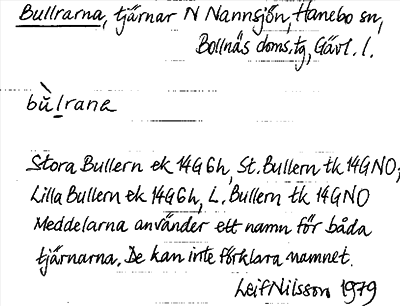 Bullrarna, tjärnar N Nannsjön, Hanebo sn,
Bollnäs doms.tg, Gävl. l.
bu̇̀l̠rana
Stora Bullern ek 14G6h, St. Bullern tk 14GNO,
Lilla Bullern ek 14G6h, L. Bullern tk 14GNO
Meddelarna använder ett namn för båda
tjärnarna. De kan inte förklara namnet.
Leif Nilsson 1979